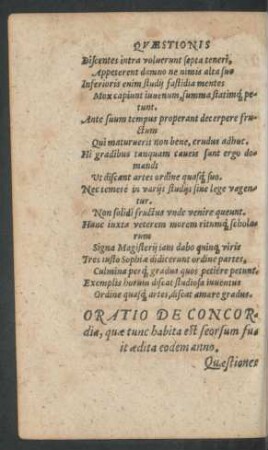 QVÆSTIONIS
Discentes intra voluerunt septa teneri,
Appeterent damno ne nimis alta suo
Inferioris enim studij fastidia mentes
Mox capiunt iuuenum, summa statimq́; pe
tunt.
Ante suum tempus properant decerpere fru-
ctum
Qui maturuerit non bene, crudus adhuc.
Hi gradibus tanquam caueis sunt ergo do-
mandi
Vt discant artes ordine quasq́; suo.
Nec temerè in varijs studijs sine lege vagen-
tur.
Non solidi fructus vnde venire queunt.
Hunc iuxta veterem morem ritumq́; schola-
rum
Signa Magisterij iam dabo quinq; viris
Tres iusto Sophiæ didicerunt ordine partes,
Culmina per q́; gradus quos petiêre petunt.
Exemplis horum discat studiosa iuuentus
Ordine quasq́; artes, discat amare gradus.
ORATIO DE CONCOR-
dia, quæ tunc habita est seorsum fu-
it ædita eodem anno.
Quæstiones